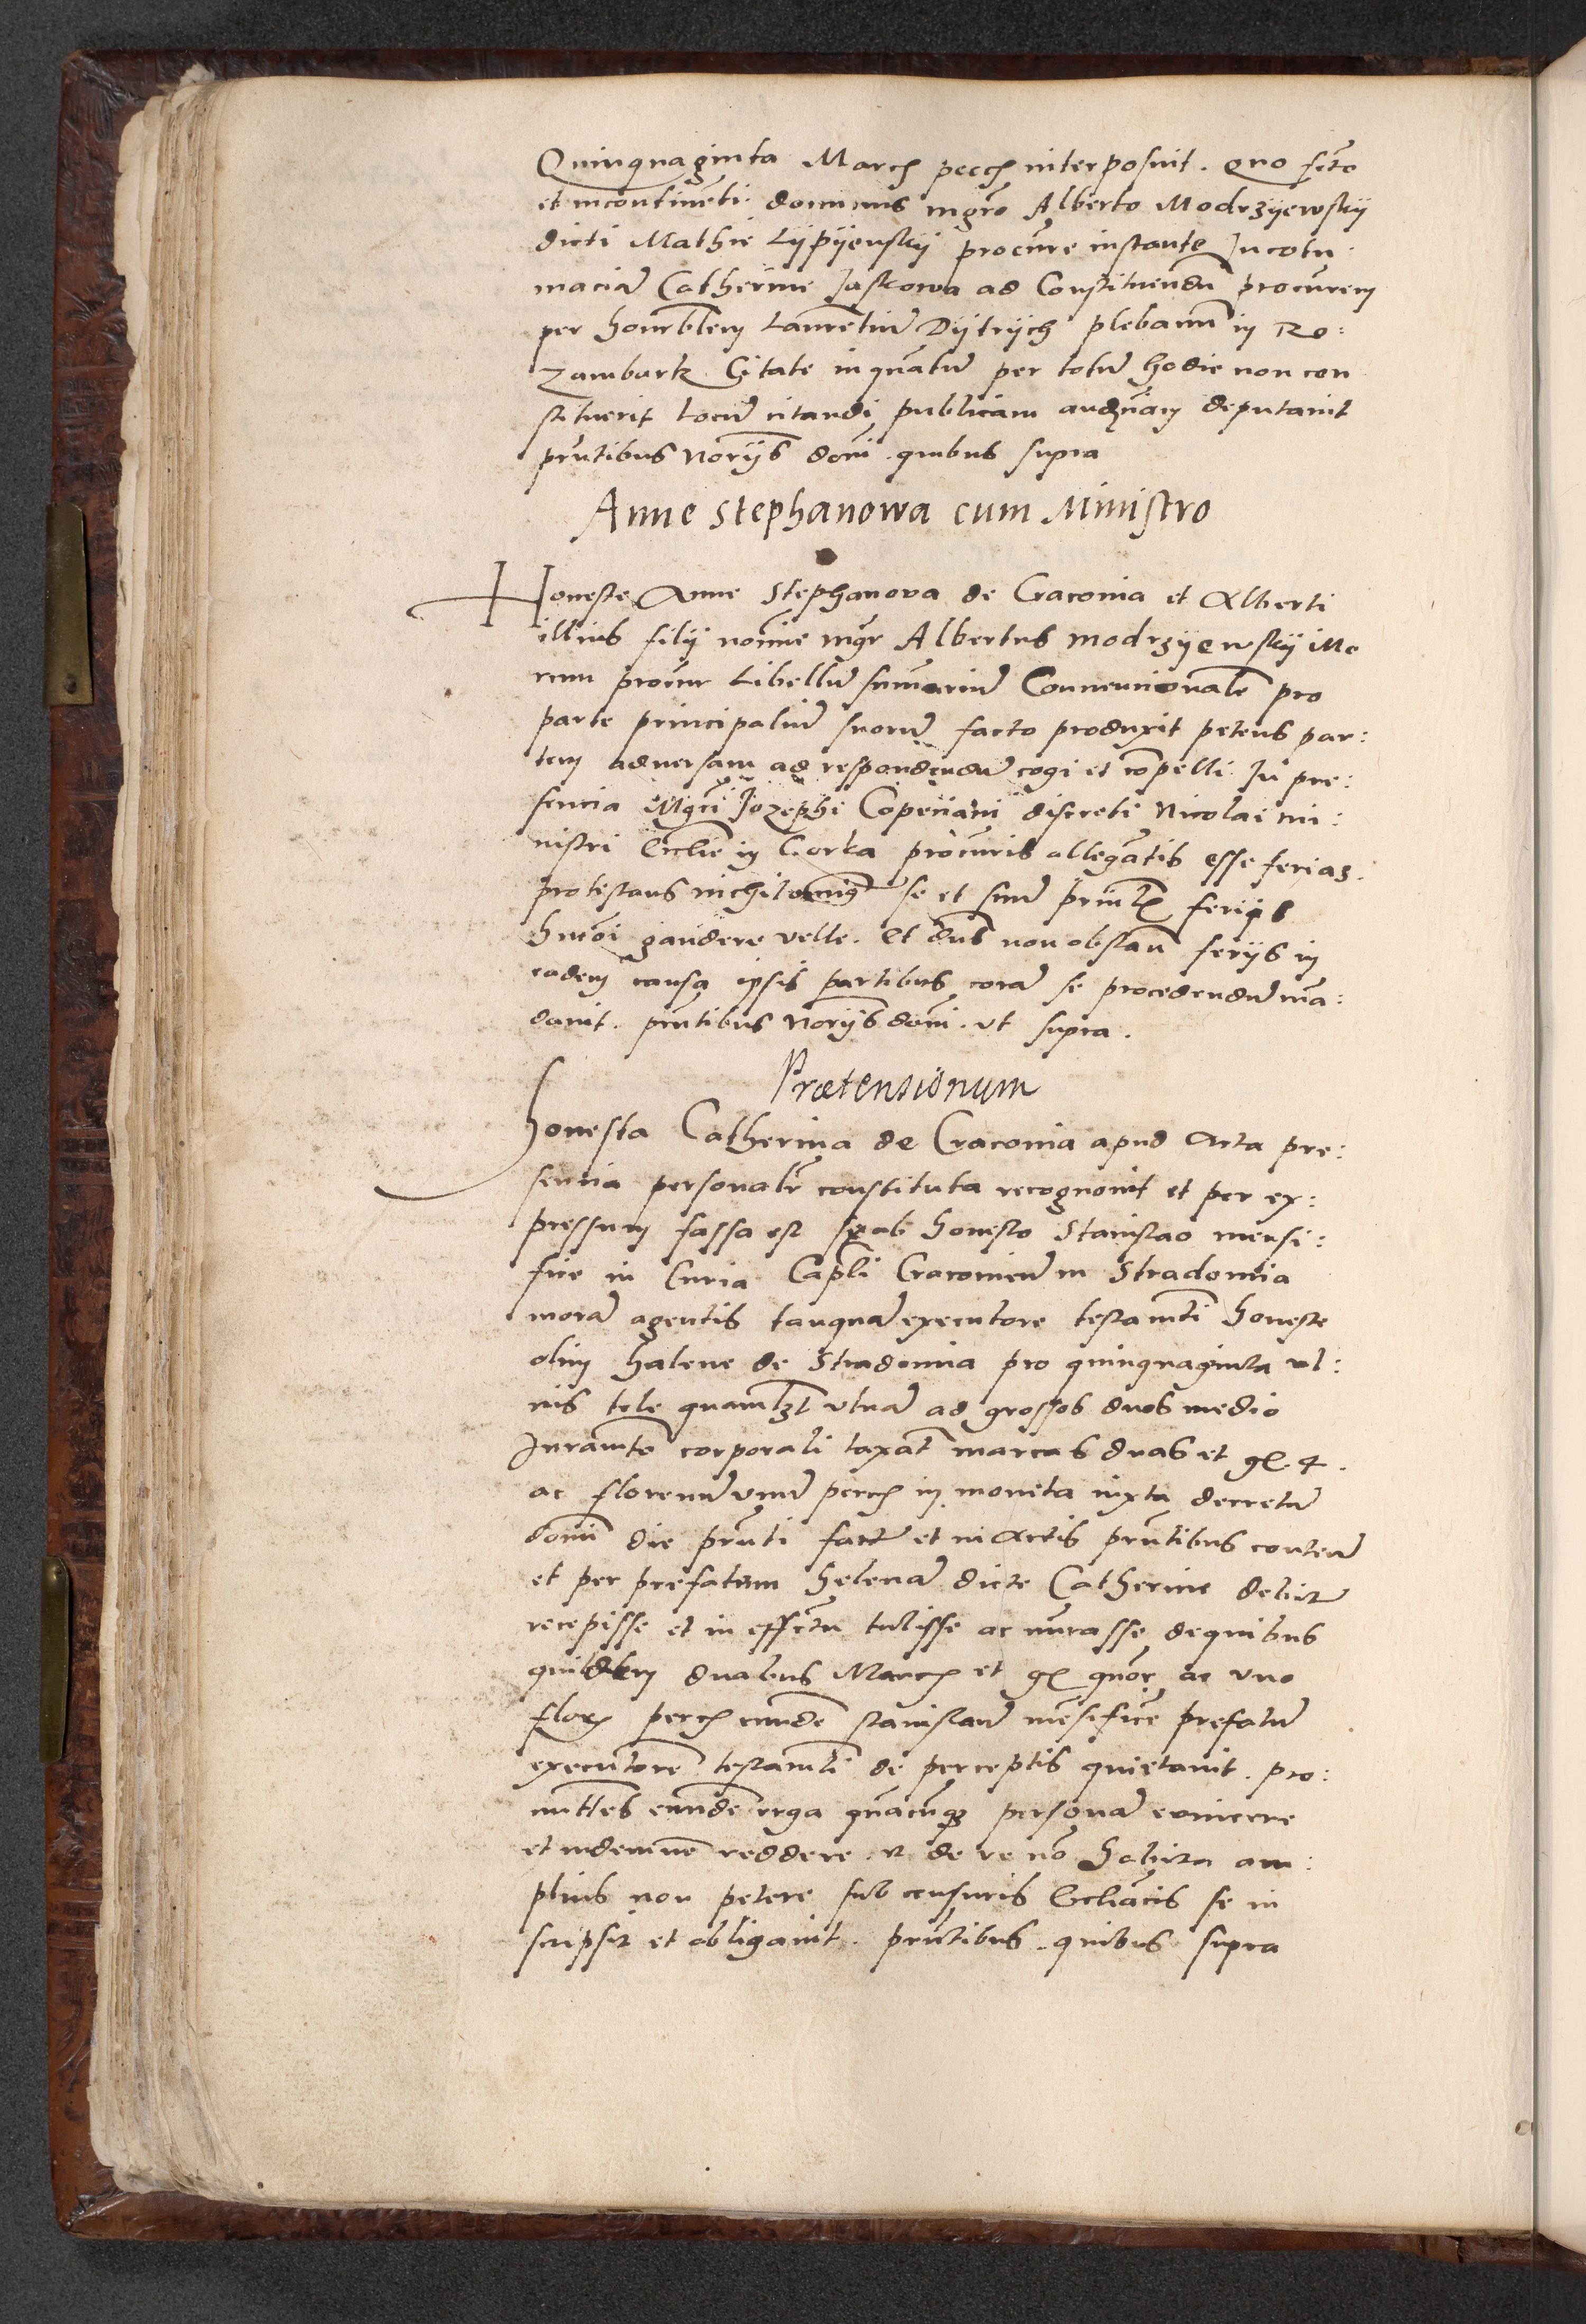 Quinquaginta March pecch interposuit. Quo scito
et incontinenti dominus mgro Alberto Modrzyewsky
dicti Mathie Lypyensky procure instante In cotu
macia Catherine Jaskowa ad Constituendu procurem
per honrblem Laurentiu Dytrych plebanu in Ro:
zambark Citate inquatu per totu hodie non con
stituerit Locu citandi publicam audnciam deputavit
pntibus Noriis domi quibus supra
Anne Stephanowa cum Ministro
Honeste Anne Stephanova de Cracovia et Alberti
illius filii noie mgr Albertus Modrzyewsky ille
rum procur Libellu sumariu Convencionale pro
parte principaliu suoru facto produxit petens par:
tem adversam ad respondendu cogi et copelli In pre:
sencia Mgri Jozephi Copeciani discreti Nicolai mi:
nistri Ecclie in Gorka procuris allegatis esse ferias.
protestans nichilominus se et suu prinlem feriis
hmoi gaudere velle. Et dns non obstan feriis in
eadem causa ipsis partibus cora se procedendu ma:
davit. pntibus Noriis domi. ut supra.
Prætensionum
Honesta Catherina de Cracovia apud Acta pre:
sencia personalr constituta recognovit et per ex:
pressum fassa est se ab honesto Stanislao mensi:
fice in Curia Capli Cracovien in Stradomia
mora agentis tanqua executore testamti honeste
olim Halene de Stradomia pro quinquaginta ul:
nis tele quamlzt ulna ad grossos duos medio
Juramto corporali taxat marcas duas et gr. 4.
ac florenu unu pecch in moneta iuxta decretu
domi die pnti factu et in Actis pntibus contentu
et per prefatam Helena dicte Catherine debitu
recepisse et in effectu tulisse ac nurasse de quibus
quidem duabus March et gr quor ac uno
flor pecch eunde Stanislau mesifice prefatu
executore testamti de perceptis quietavit. pro:
mittes eunde erga quacunq persona evincere
et indemne reddere. et de re no habita am:
plius non petere sub censuris Eccliacis se in
scripsit et obligavit. pntibus. quibus supra